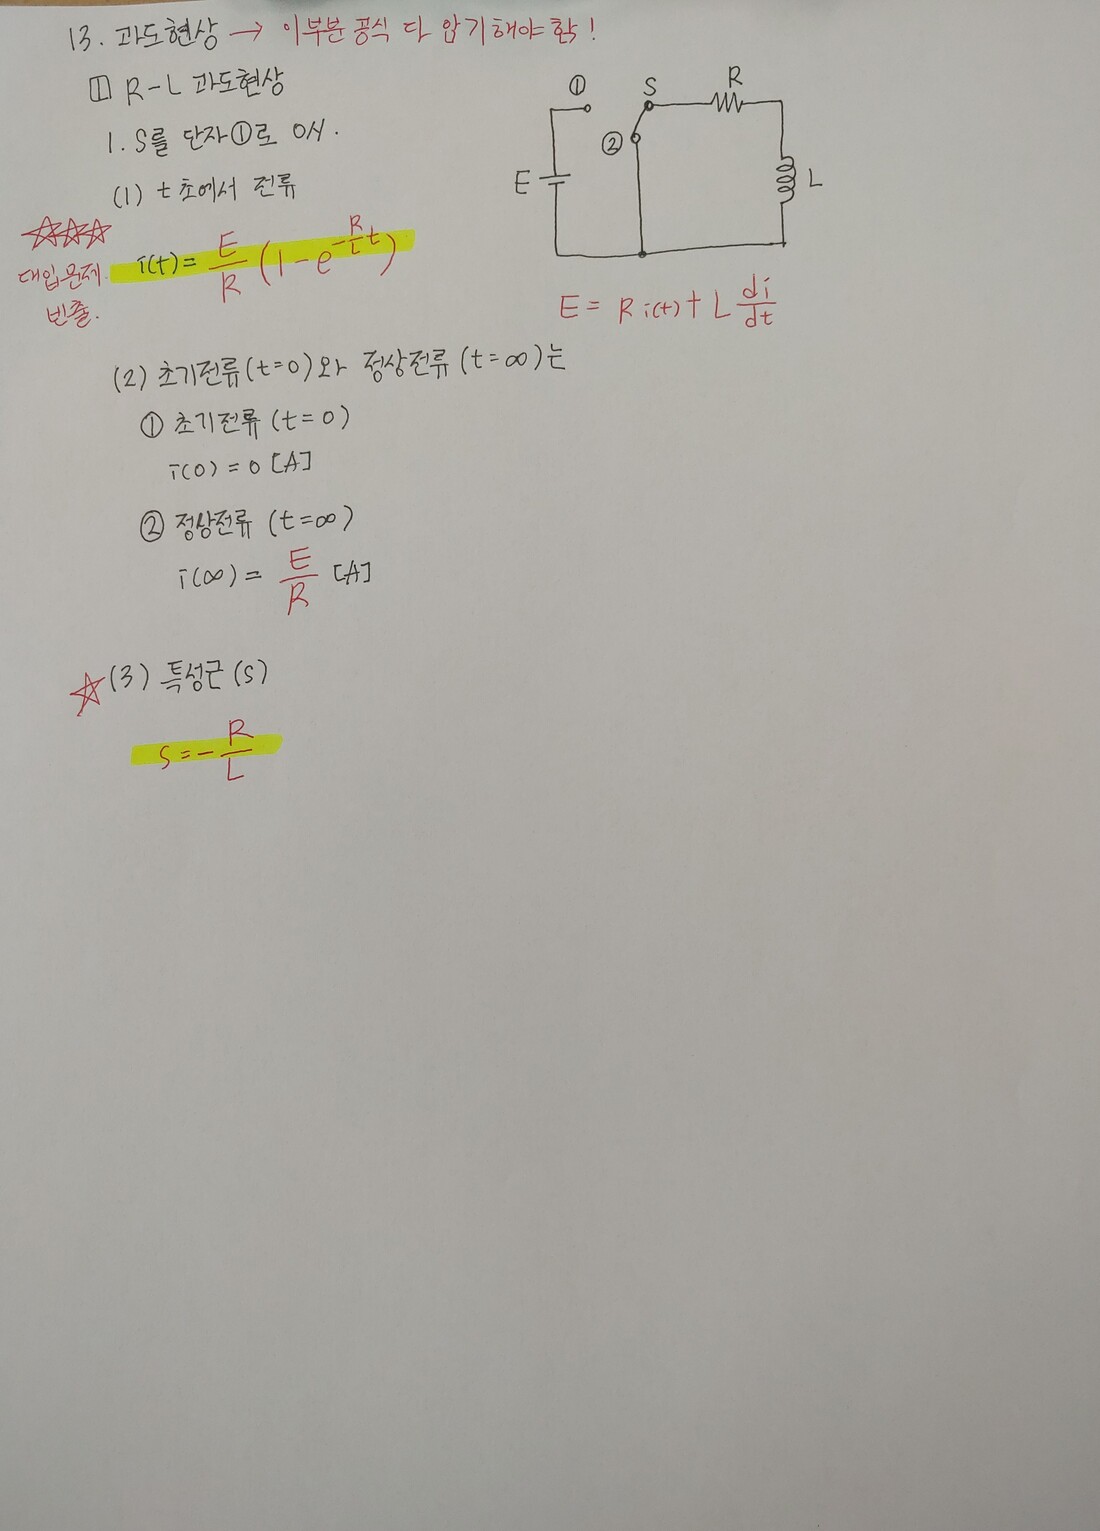 13. 과도현상 → 이부분 공식 다 암기해야 함!
1 R-L 과도현상
1. S를 단자①로 OM.
(1) t초에서 전류
☆☆☆
대입문제.
빈출.
i(t) = E/R (1 - e^(-R/L t))
① S R
②
E L
E = R i(t) + L di/dt
(2) 초기전류(t=0)와 정상전류(t=∞)는
① 초기전류 (t=0)
i(0) = 0 [A]
② 정상전류 (t=∞)
i(∞) = E/R [A]
☆(3) 특성근(s)
s = - R/L